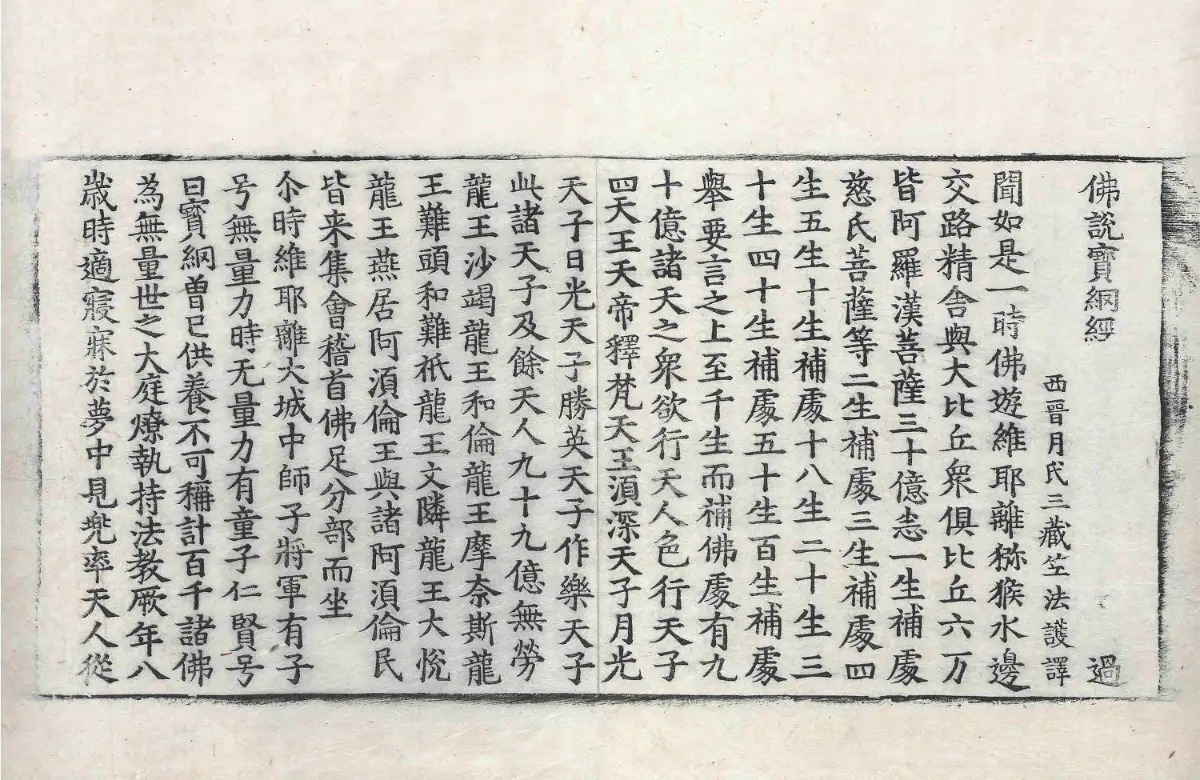 佛說寶網經 過
西晉月氏三藏竺法護譯
聞如是一時佛遊維耶離獼猴水邊
交路精舍與大比丘衆俱比丘六万
皆阿羅漢菩薩三十億悉一生補處
慈氏菩薩等二生補處三生補處四
生五生十生補處十八生二十生三
十生四十生補處五十生百生補處
舉要言之上至千生而補佛處有九
十億諸天之衆欲行天人色行天子
四天王天帝釋梵天王湏深天子月光
天子日光天子勝英天子作樂天子
此諸天子及餘天人九十九億無勞
龍王沙竭龍王和倫龍王摩奈斯龍
王難頭和難祇龍王文隣龍王大悅
龍王燕居阿湏倫王與諸阿湏倫民
皆来集會稽首佛足分部而坐
尒時維耶離大城中師子將軍有子
号無量力時无量力有童子仁賢号
曰寶網曽已供養不可稱計百千諸佛
為無量世之大庭燎執持法教厥年八
歲時適寢寐於夢中見兠率天人從